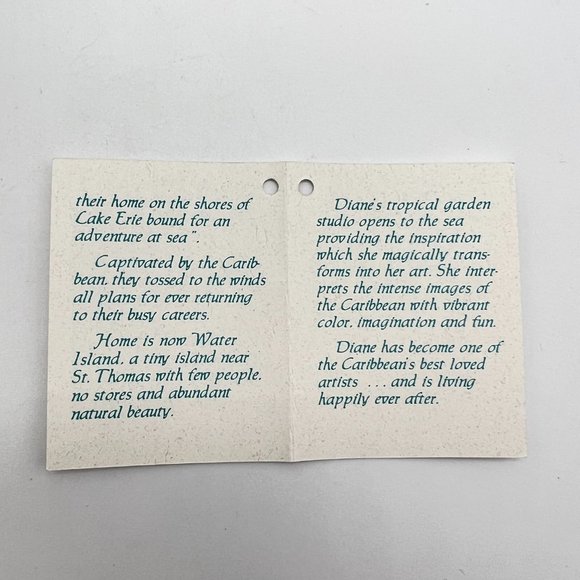 their home on the shores of
Lake Erie bound for an
adventure at sea".
Captivated by the Carib-
bean, they tossed to the winds
all plans for ever returning
to their busy careers.
Home is now Water
Island, a tiny island near
St. Thomas with few people,
no stores and abundant
natural beauty.
Diane's tropical garden
studio opens to the sea
providing the inspiration
which she magically trans-
forms into her art. She inter-
prets the intense images of
the Caribbean with vibrant
color, imagination and fun.
Diane has become one of
the Caribbean's best loved
artists ... and is living
happily ever after.